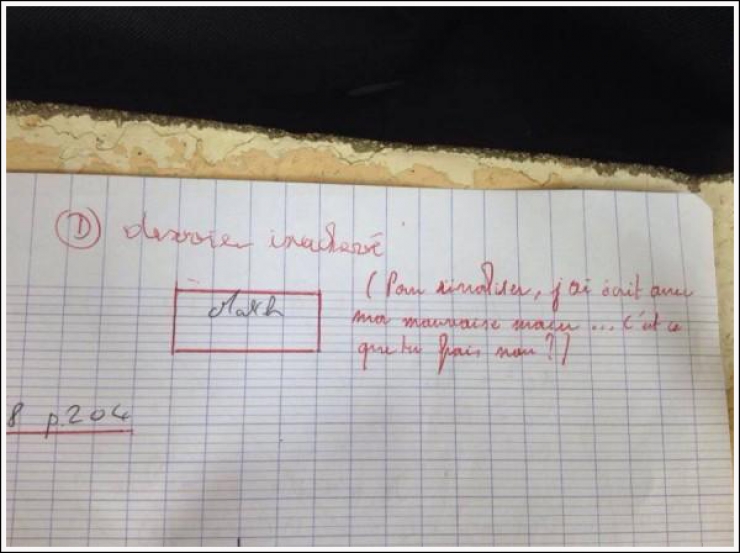 D devoir inachevé
(Pour rivaliser, j'ai écrit avec
ma mauvaise main ... c'est ce
que tu fais non ?)
Math
8 p.204